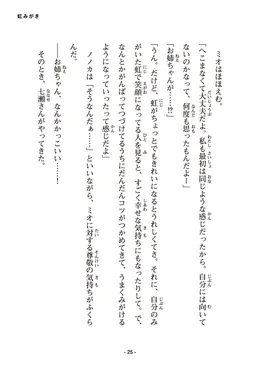 虹みがき
ミオはほほえむ。
「へこまなくて大丈夫だよ。私も最初は同じような感じだったから。自分には向いて
ないのかなって、何度も思ったもんだよー」
「お姉ちゃんが……!?」
「うん。だけど、虹がちょっとでもきれいになるとうれしくてさ。それに、自分のみ
がいた虹で笑顔になってる人を見ると、すごく幸せな気持ちにもなったりして。で、
なんとかがんばってつづけてるうちにだんだんコツがつかめてきて、うまくみがける
ようになっていったって感じかな」
ノノカは「そうなんだぁ……」といいながら、ミオに対する尊敬の気持ちがふくら
んだ。
――お姉ちゃん、なんかかっこいい……！
そのとき、七瀬さんがやってきた。
- 25 -